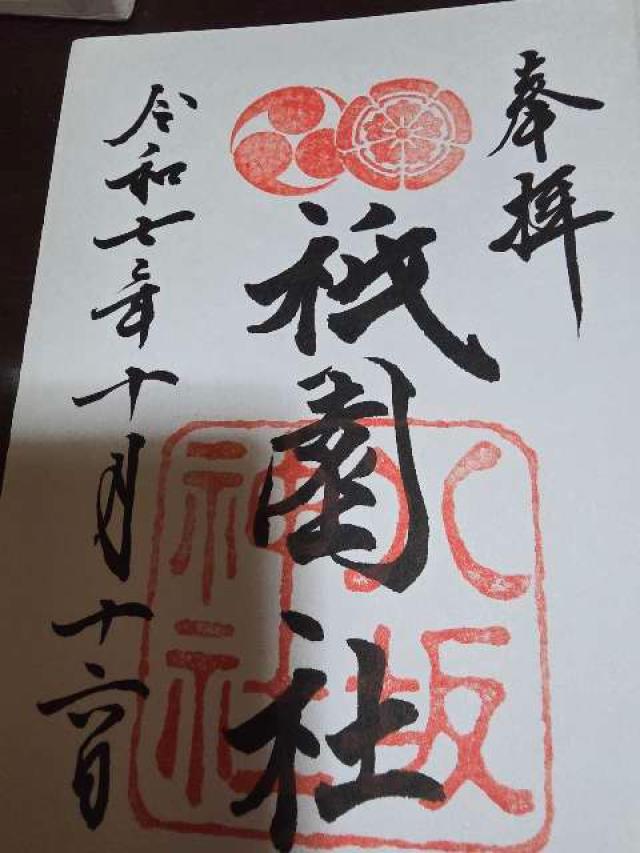 奉拝
祇園社
八坂
神社
令和七年十月十六日